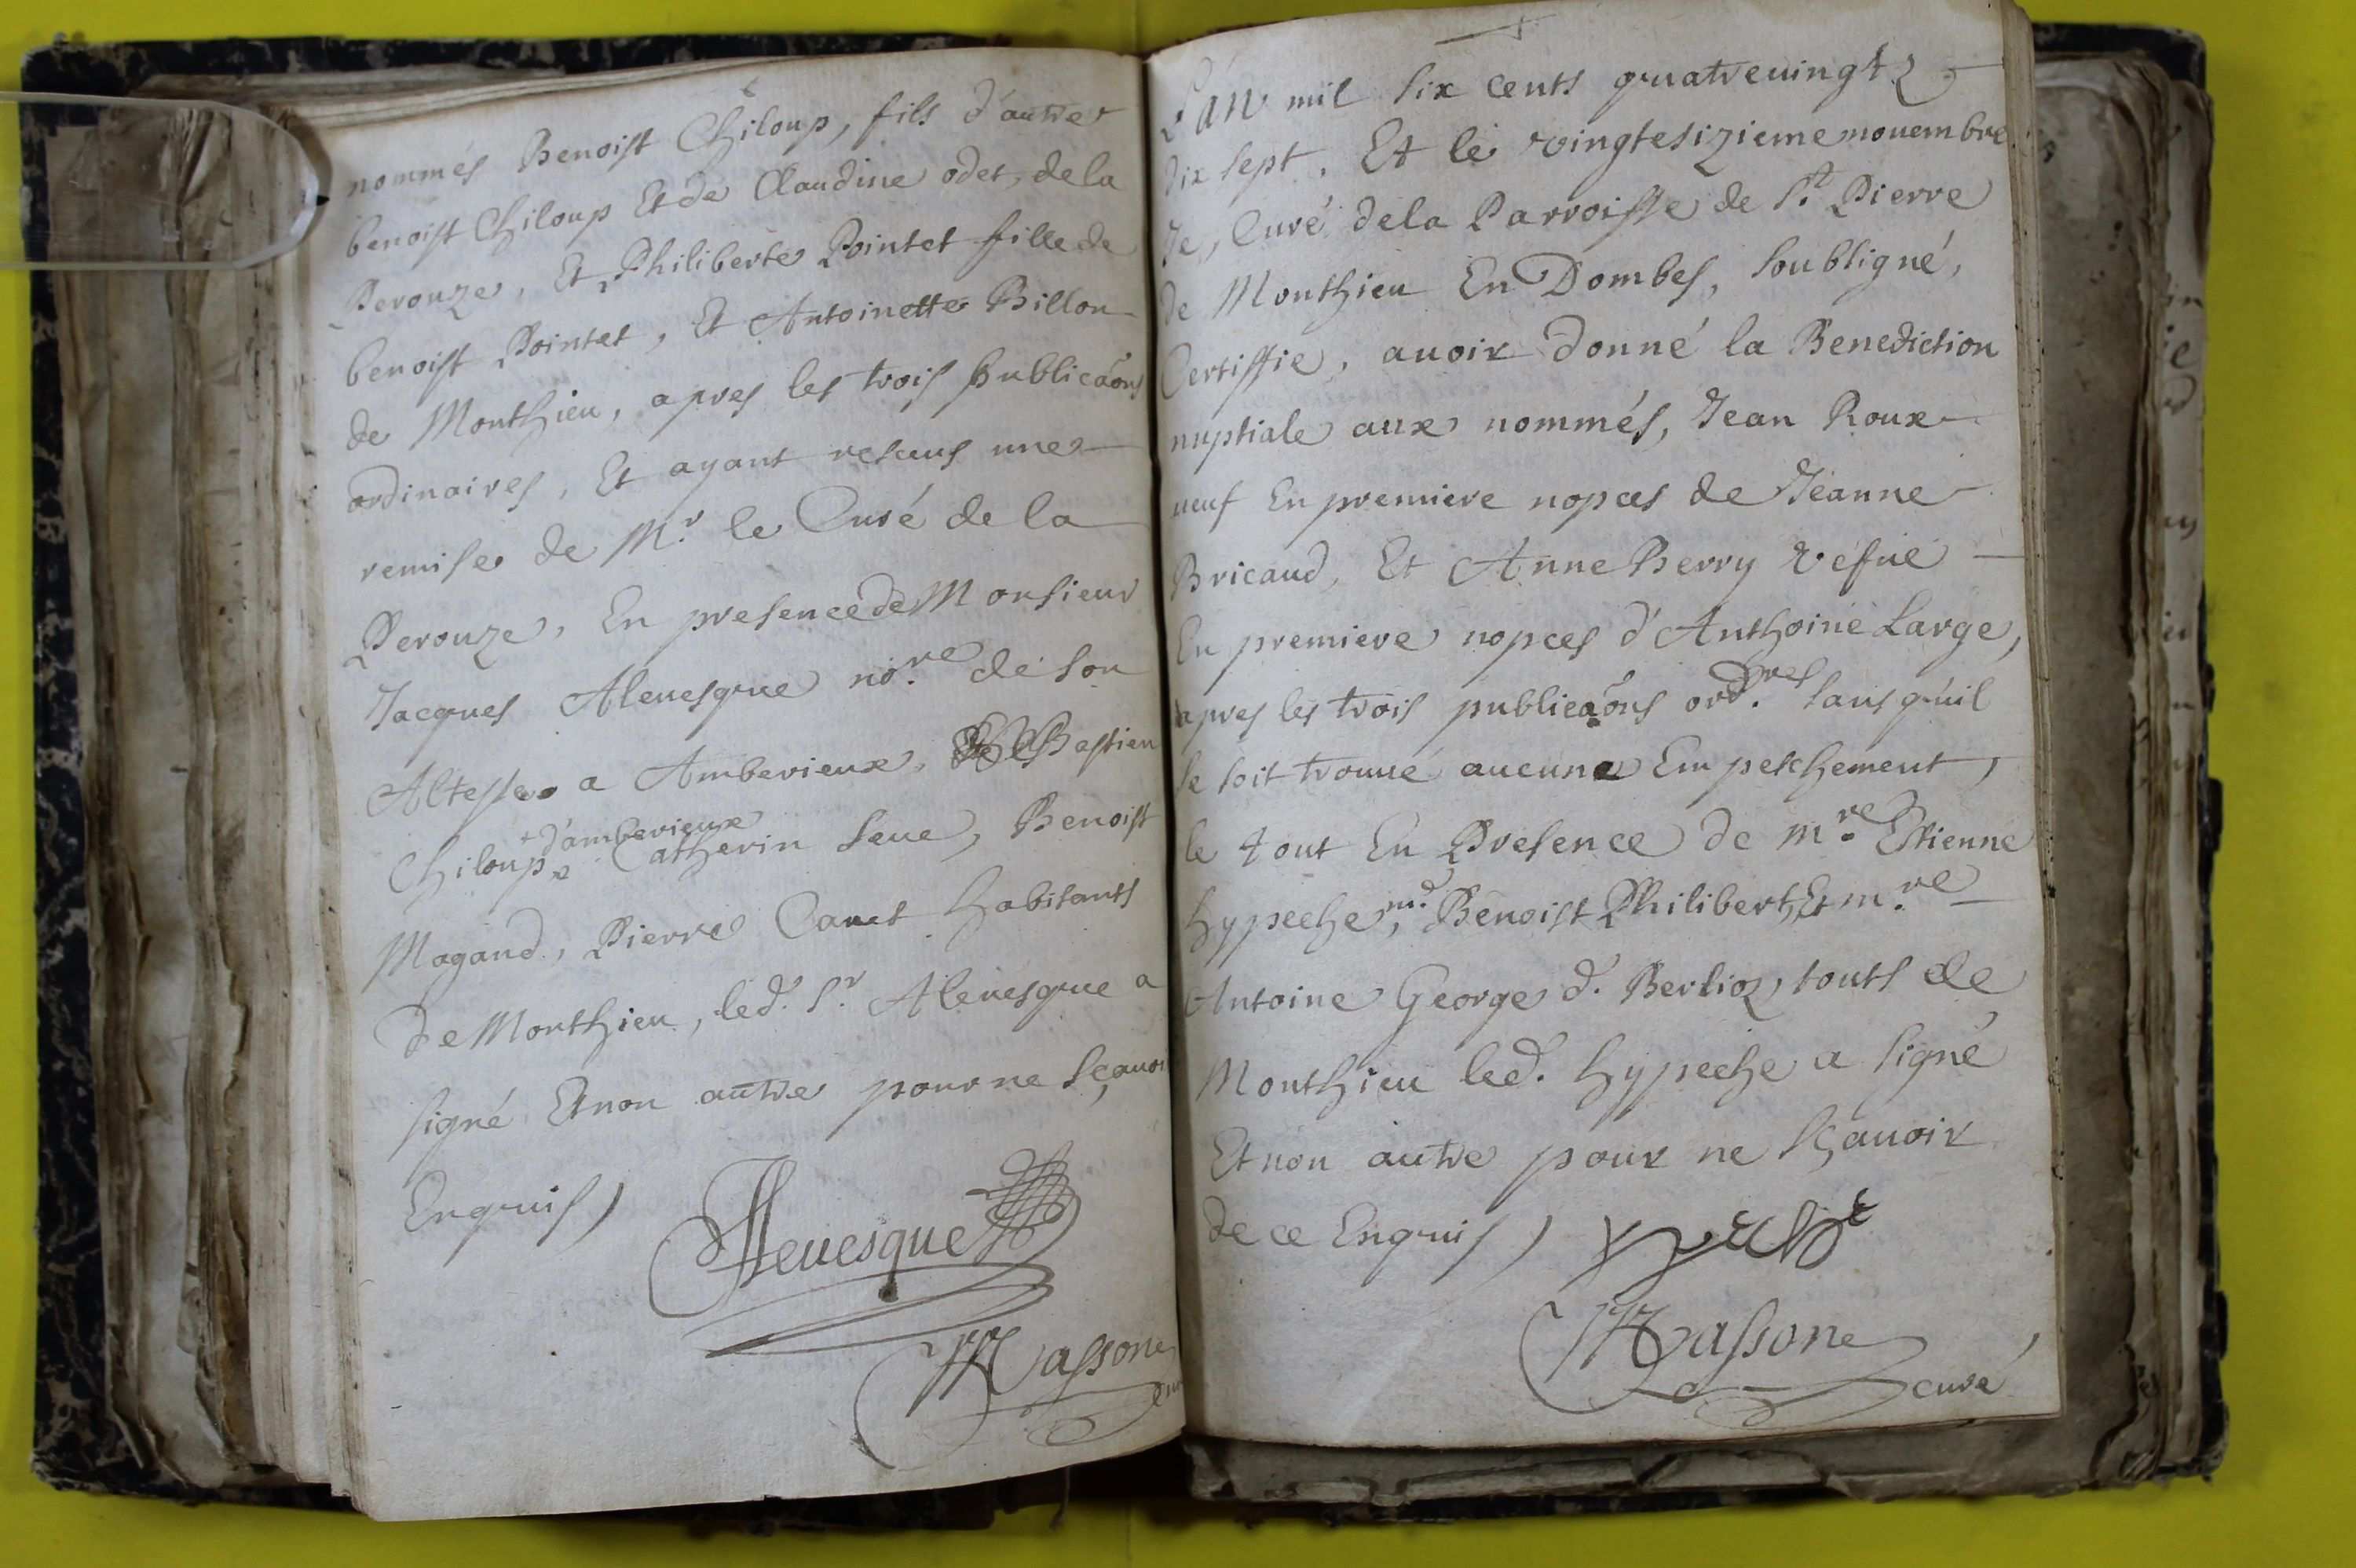 nommés Benoist Chiloup, fils d'autre
benoist Chiloup Et de Claudine odet, de la
Perouze, Et Philiberte Pointet fille de
benoist Pointet, Et Antoinette Billon
de Monthieu, apres les trois publicãons
ordinaires, Et ayant reseus une
remise de Mr. le Curé de la
Perouze, En presence de Monsieur
Jacques Aleuesque nõ.re de son
Altesse a Amberieux, Bastien
+ d'amberieux
Chiloup x Catherin Seue, Benoist
Magand, Pierre Canet habitants
de Monthieu, led. Sr. Aleuesque a
signé Et non autre pour ne sçauoir
Enquis)
Aleuesque
Massone
L'an mil six cents quatreuingtz
dix sept, Et le vingtesizieme nouembre
Je, Curé de la Parroisse de St. Pierre
de Monthieu En Dombes, soubsigné,
Certiffie, auoir donné la Benediction
nuptiale aux nommés, Jean Roux
ueuf En premiere nopces de Jeanne
Bricaud, Et Anne Berry véfue
En premiere nopces d'Anthoine Large,
apres les trois publicãons ord.res sans qu'il
se soit trouué aucune Empeschement,
le tout En Presence de m.re Estienne
hypeche, md. Benoist Philibert, Et m.re
Antoine George d. Berlioz, touts de
Monthieu led. hypeche a signé
Et non autre pour ne sçauoir
de ce Enquis)
Massone
curé